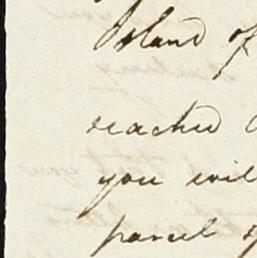 Island of
reached
you will
parcel